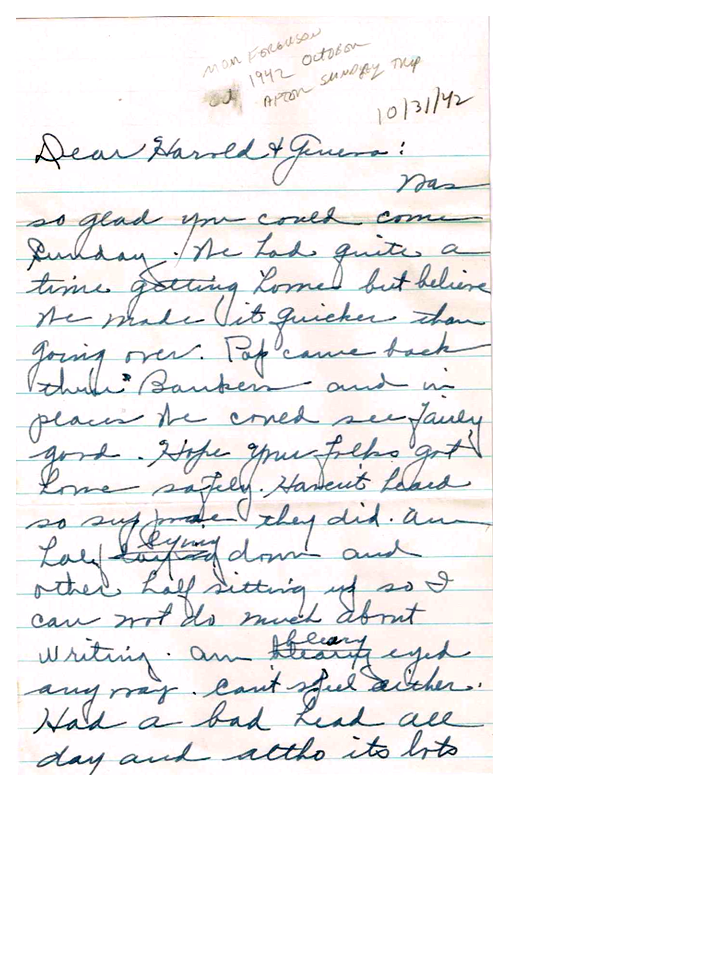 Mom Ferguson
1942 October
After Sunday Trip
10/31/42
Dear Harold & Geneva:
Was
so glad you could come
Sunday. We had quite a
time getting home but believe
we made it quicker than
going over. Pop came back
thru Bankers and in
places we could see fairly
good. Hope your folks got
home safely. Haven't heard
so suppose they did. Am
half laying lying down and
other half sitting up so I
can not do much about
writing. Am bleary eyed
any way. Can't spel either.
Had a bad head all
day and altho its lots